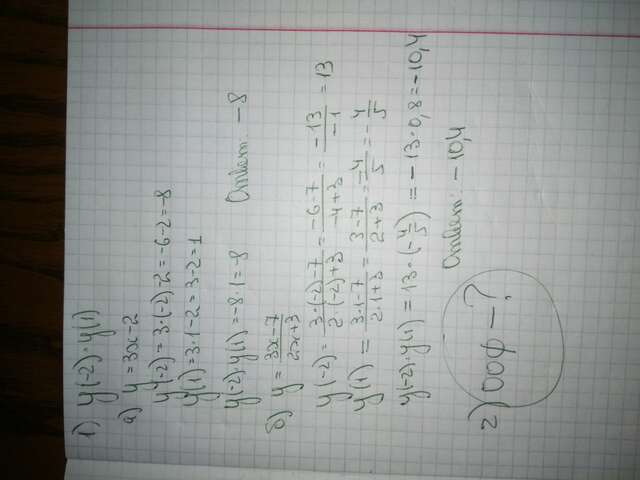 1) y(-2)·y(1)
а) y = 3x-2
y(-2) = 3·(-2)-2 = -6-2 = -8
y(1) = 3·1-2 = 3-2 = 1
y(-2)·y(1) = -8·1 = -8 Ответ: -8
б) y = \frac{3x-7}{2x+3}
y(-2) = \frac{3·(-2)-7}{2·(-2)+3} = \frac{-6-7}{-4+3} = \frac{-13}{-1} = 13
y(1) = \frac{3·1-7}{2·1+3} = \frac{3-7}{2+3} = \frac{-4}{5} = -\frac{4}{5}
y(-2)·y(1) = 13·(-\frac{4}{5}) = -13·0,8 = -10,4
Ответ: -10,4
2) ООФ - ?